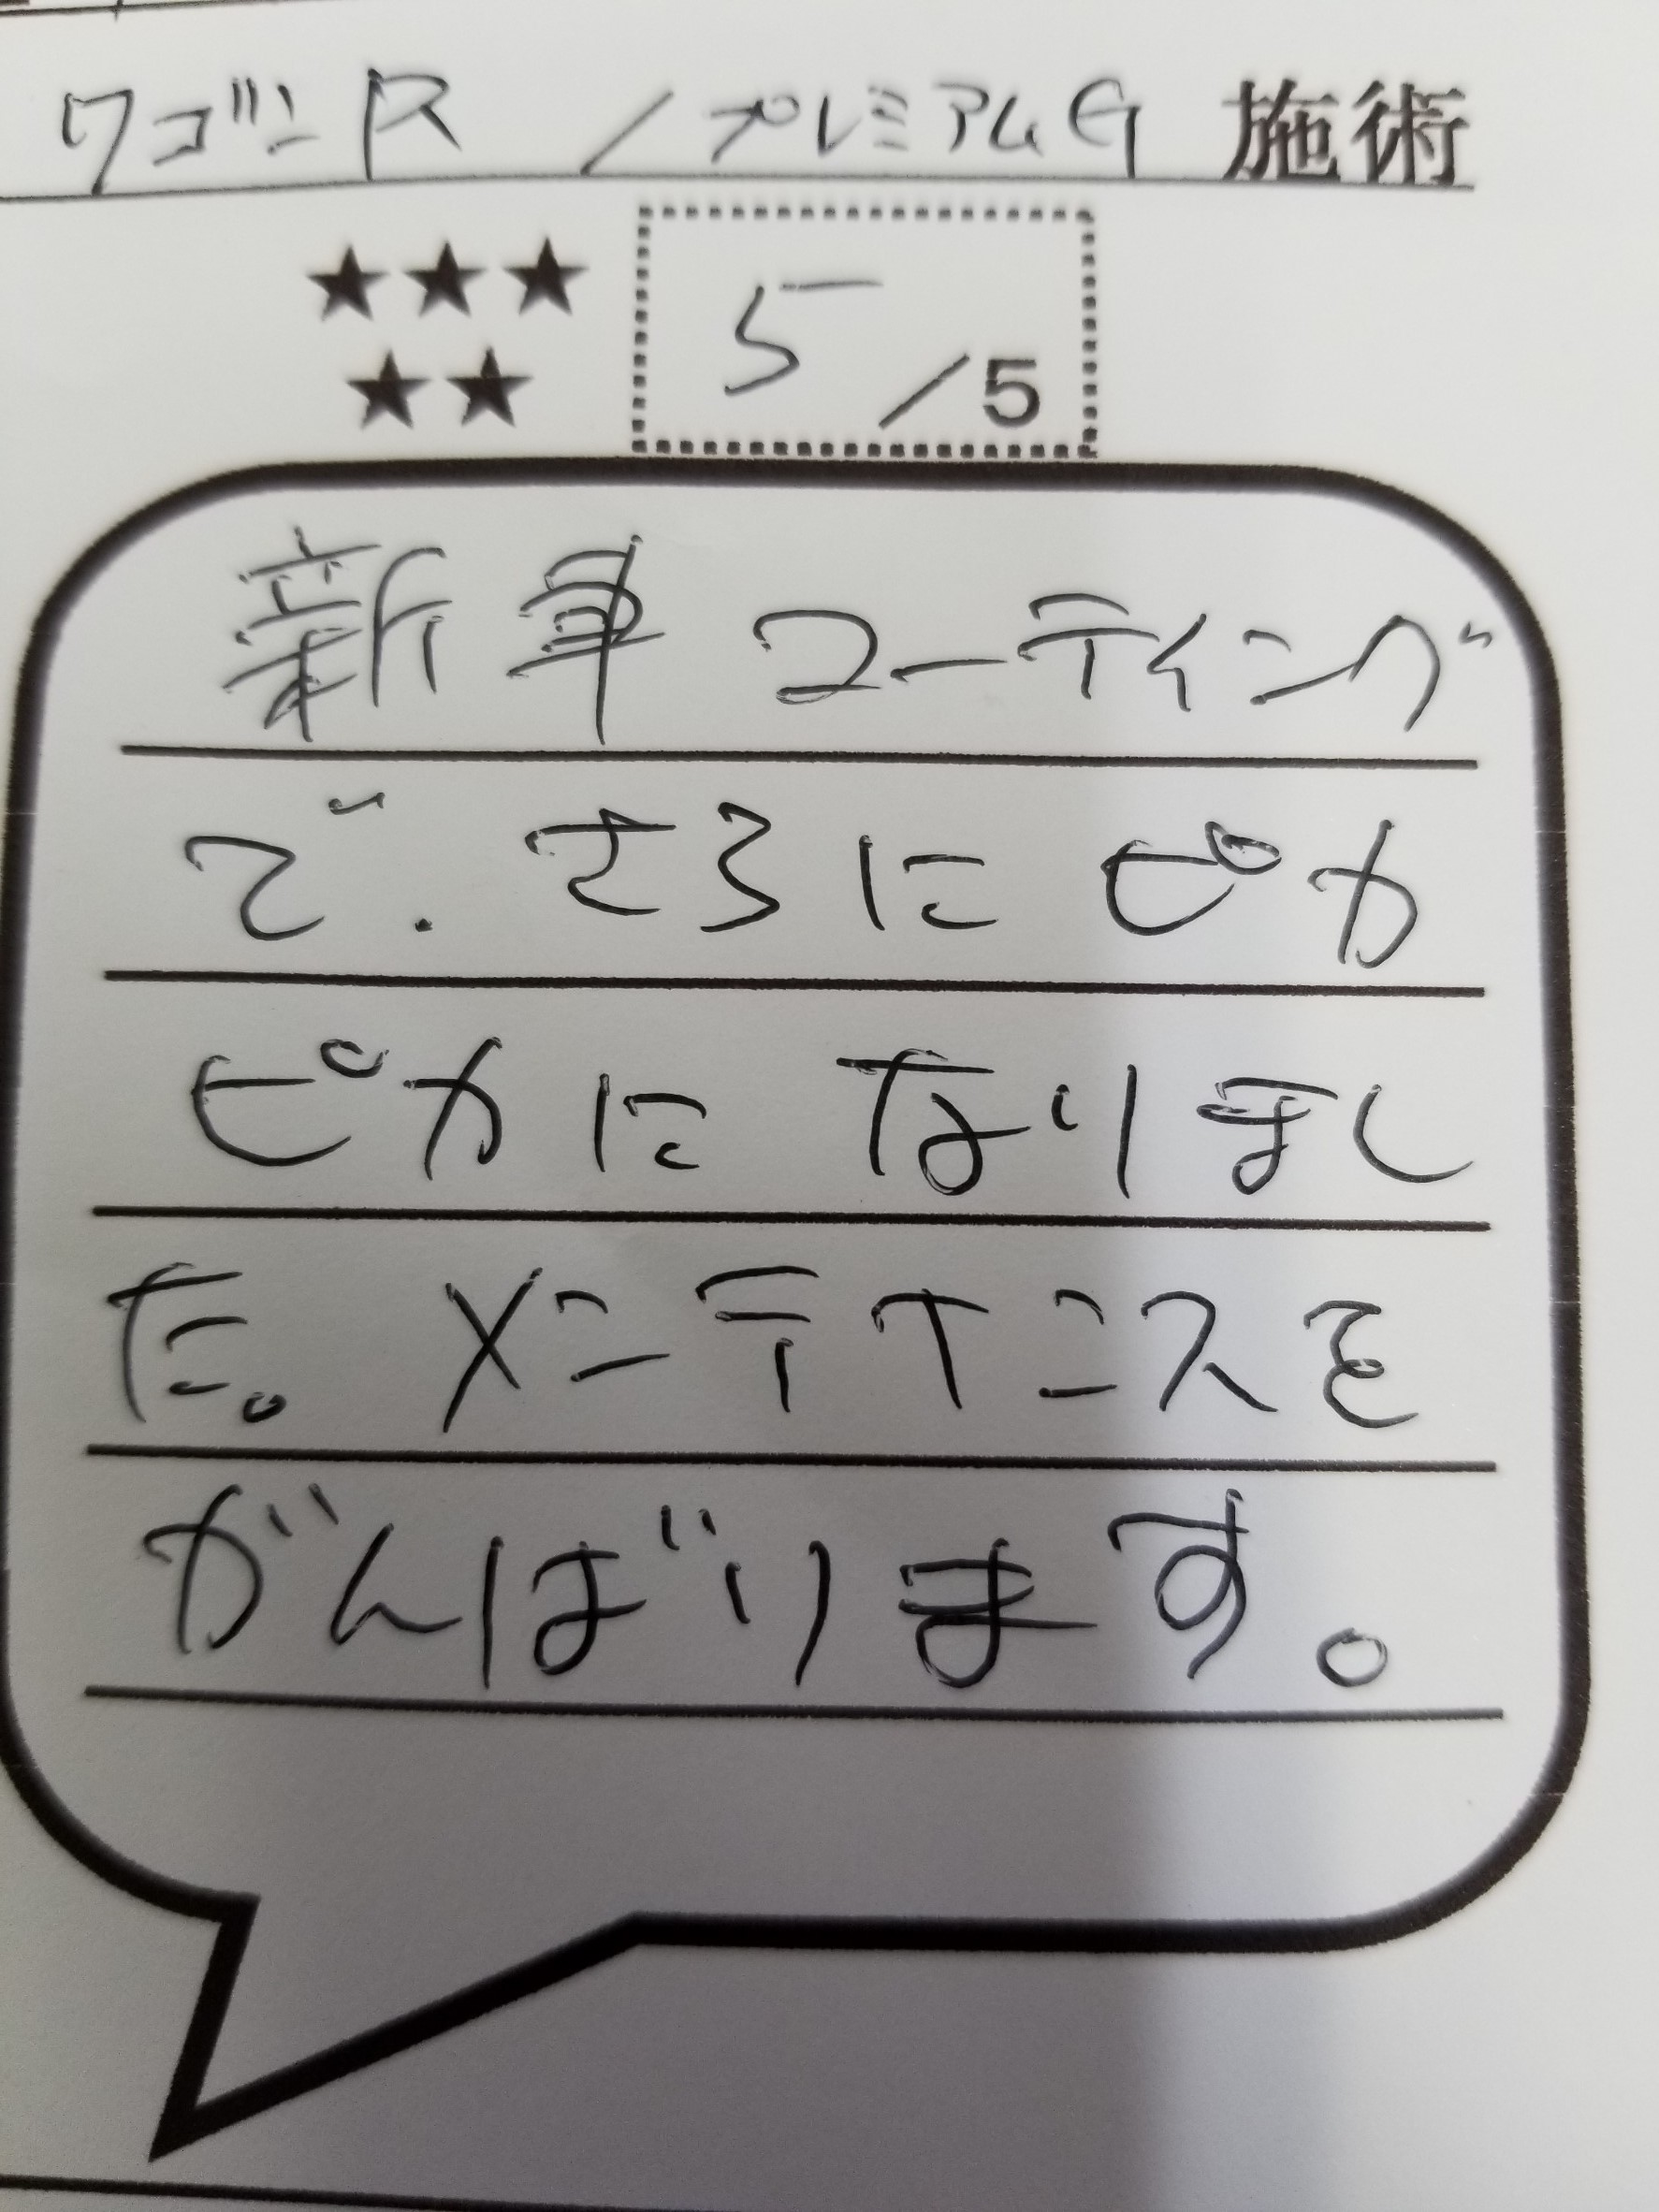 ワゴンR /プレミアムG 施術
★★★
★★
5/5
新車コーティング
で、さらにピカ
ピカになりまし
た。メンテナンスを
がんばります。